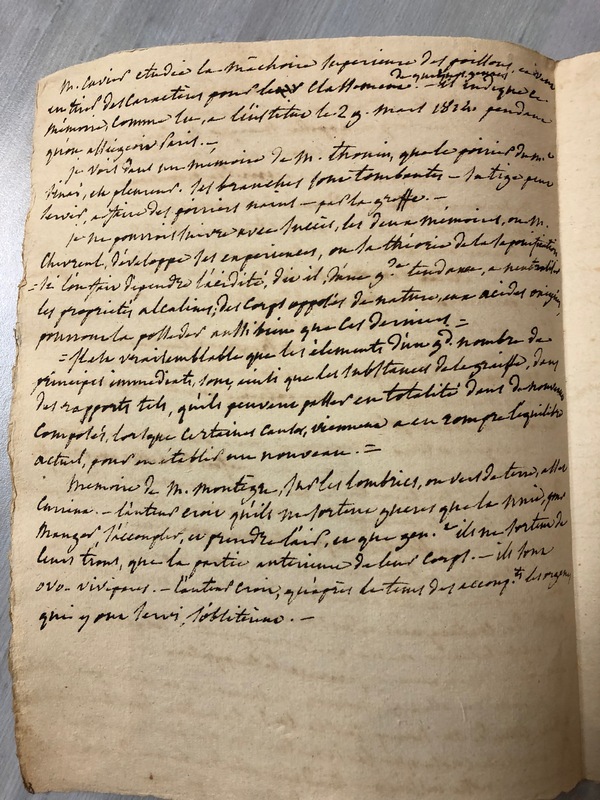 M. Cuvier etudie la machoire superieure des poissons, et
en tire des caracteres pour leur classement de quelques genres. — il indique ce
memoire, comme lu, a l'institut le 29. mars 1814 pendant
qu'on assiegeoit Paris. —
je vois dans un memoire de M. thouin, que le poirier du mt
Sinai, est pleureur. ses branches sont tombantes — sa tige peut
servir, a faire des poiriers nains — par la greffe. —
je ne pourrois suivre avec succès, les deux memoires, ou M.
Chevreul, developpe ses experiences, ou sa théorie de la saponification
= si l'on fait dependre l'acidité, dit il, d'une gde tendance, a neutraliser
les proprietés alcalines; des corps opposés de nature, aux acides
pourront la posseder aussi bien que ces derniers =
= il est vraisemblable que les élements d'un gd nombre de
principes immediats, sont, ainsi que les substances de la graisse, dans
des rapports tels, qu'ils peuvent passer en totalité dans de nouveaux
composés, lorsque certaines causes, viennent a en rompre l'equilibre
actuel, pour en etablir un nouveau. =
Memoire de M. montegre, sur les lombrics, ou vers de terre,
— l'auteur croit qu'ils ne sortent gueres que la nuit, pour
manger, s'accoupler, et prendre l'air, et que gen.t ils ne sortent de
leurs trous, que la partie anterieure de leur corps. — ils sont
ovo-vivipares. — l'auteur croit, qu'après le tems des accoup.ts les organes
qui y ont servi, s'obliterent. —